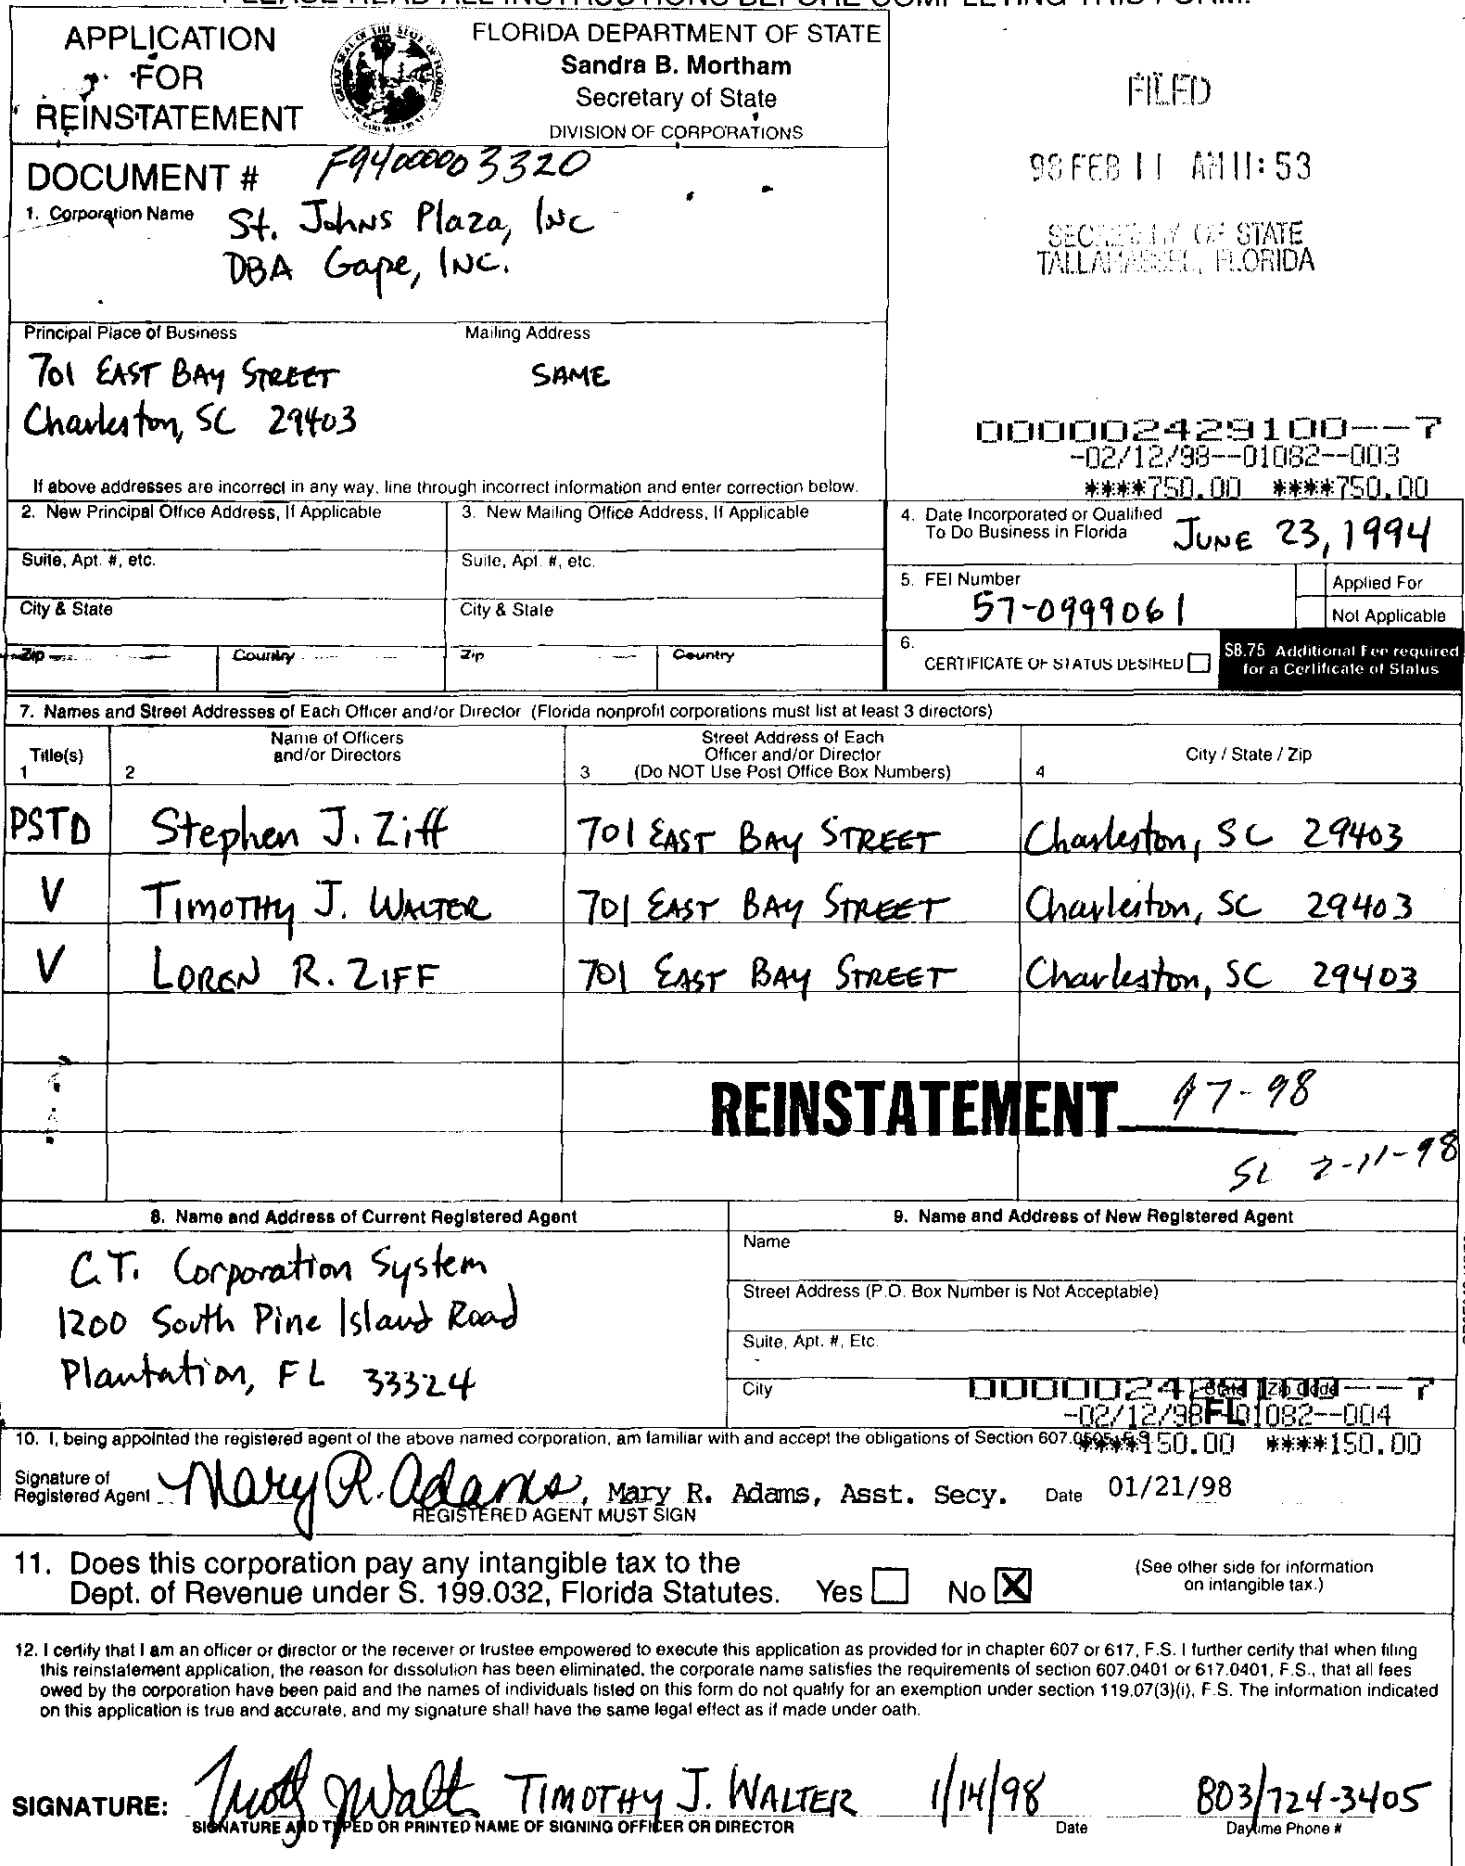 PLEASE READ ALL INSTRUCTIONS BEFORE COMPLETING THIS FORM.
APPLICATION
FOR
REINSTATEMENT
FLORIDA DEPARTMENT OF STATE
Sandra B. Mortham
Secretary of State
DIVISION OF CORPORATIONS
FILED
98 FEB 11 AM 11: 53
SECRETARY OF STATE
TALLAHASSEE, FLORIDA
DOCUMENT # F94000003320
1. Corporation Name St. Johns Plaza, Inc
DBA Gape, Inc.
Principal Place of Business Mailing Address
701 EAST BAY STREET SAME
Charleston, SC 29403
000002429100--7
-02/12/98--01082--003
****750.00 ****750.00
If above addresses are incorrect in any way, line through incorrect information and enter correction below.
2. New Principal Office Address, If Applicable 3. New Mailing Office Address, If Applicable
Suite, Apt. #, etc. Suite, Apt. #, etc.
City & State City & State
Zip Country Zip Country
4. Date Incorporated or Qualified
To Do Business in Florida JUNE 23, 1994
5. FEI Number 57-0999061
Applied For
Not Applicable
6. CERTIFICATE OF STATUS DESIRED
$8.75 Additional Fee required
for a Certificate of Status
7. Names and Street Addresses of Each Officer and/or Director (Florida nonprofit corporations must list at least 3 directors)
Title(s) 1
Name of Officers and/or Directors 2
Street Address of Each Officer and/or Director (Do NOT Use Post Office Box Numbers) 3
City / State / Zip 4
PSTD Stephen J. Ziff 701 EAST BAY STREET Charleston, SC 29403
V TIMOTHY J. WALTER 701 EAST BAY STREET Charleston, SC 29403
V LOREN R. ZIFF 701 EAST BAY STREET Charleston, SC 29403
REINSTATEMENT 97-98
SL 2-11-98
8. Name and Address of Current Registered Agent
C.T. Corporation System
1200 South Pine Island Road
Plantation, FL 33324
9. Name and Address of New Registered Agent
Name
Street Address (P.O. Box Number is Not Acceptable)
Suite, Apt. #, Etc.
City State Zip Code
FL
000002429100--7
-02/12/98--01082--004
****150.00 ****150.00
10. I, being appointed the registered agent of the above named corporation, am familiar with and accept the obligations of Section 607.0505, F.S.
Signature of
Registered Agent Mary R. Adams, Mary R. Adams, Asst. Secy. Date 01/21/98
REGISTERED AGENT MUST SIGN
11. Does this corporation pay any intangible tax to the
Dept. of Revenue under S. 199.032, Florida Statutes. Yes No X
(See other side for information
on intangible tax.)
12. I certify that I am an officer or director or the receiver or trustee empowered to execute this application as provided for in chapter 607 or 617, F.S. I further certify that when filing
this reinstatement application, the reason for dissolution has been eliminated, the corporate name satisfies the requirements of section 607.0401 or 617.0401, F.S., that all fees
owed by the corporation have been paid and the names of individuals listed on this form do not qualify for an exemption under section 119.07(3)(i), F.S. The information indicated
on this application is true and accurate, and my signature shall have the same legal effect as if made under oath.
SIGNATURE: TIMOTHY J. WALTER 1/14/98 803/724-3405
SIGNATURE AND TYPED OR PRINTED NAME OF SIGNING OFFICER OR DIRECTOR Date Daytime Phone #